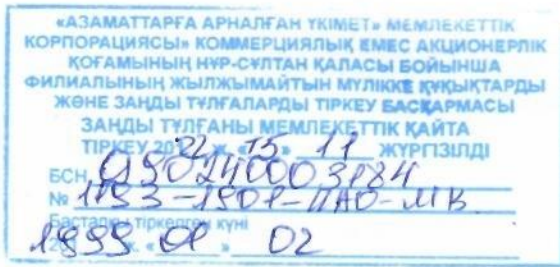 «АЗАМАТТАРҒА АРНАЛҒАН ҮКІМЕТ» МЕМЛЕКЕТТІК
КОРПОРАЦИЯСЫ» КОММЕРЦИЯЛЫҚ ЕМЕС АКЦИОНЕРЛІК
ҚОҒАМЫНЫҢ НҰР-СҰЛТАН ҚАЛАСЫ БОЙЫНША
ФИЛИАЛЫНЫҢ ЖЫЛЖЫМАЙТЫН МҮЛІККЕ ҚҰҚЫҚТАРДЫ
ЖӘНЕ ЗАҢДЫ ТҰЛҒАЛАРДЫ ТІРКЕУ БАСҚАРМАСЫ
ЗАҢДЫ ТҰЛҒАНЫ МЕМЛЕКЕТТІК ҚАЙТА
ТІРКЕУ 2022 ж. «15» 11 ЖҮРГІЗІЛДІ
БСН
№ 1193-1901-ПАО-МК
Бастапқы тіркелген күні
1999 ж. «01» 02